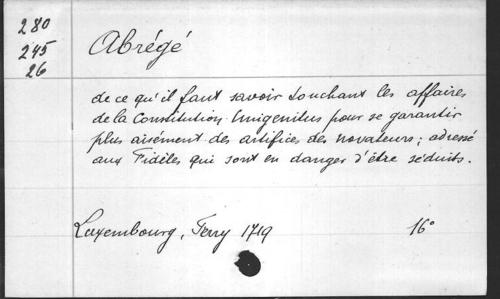 280
245
26
Abrégé
de ce qu'il faut savoir touchant les affaires
de la Constitution Unigenitus pour se garantir
plus aisément des artifices des novateurs; adressé
aux Fidèles qui sont en danger d'être séduits.
Luxembourg, Ferry 1719 16°